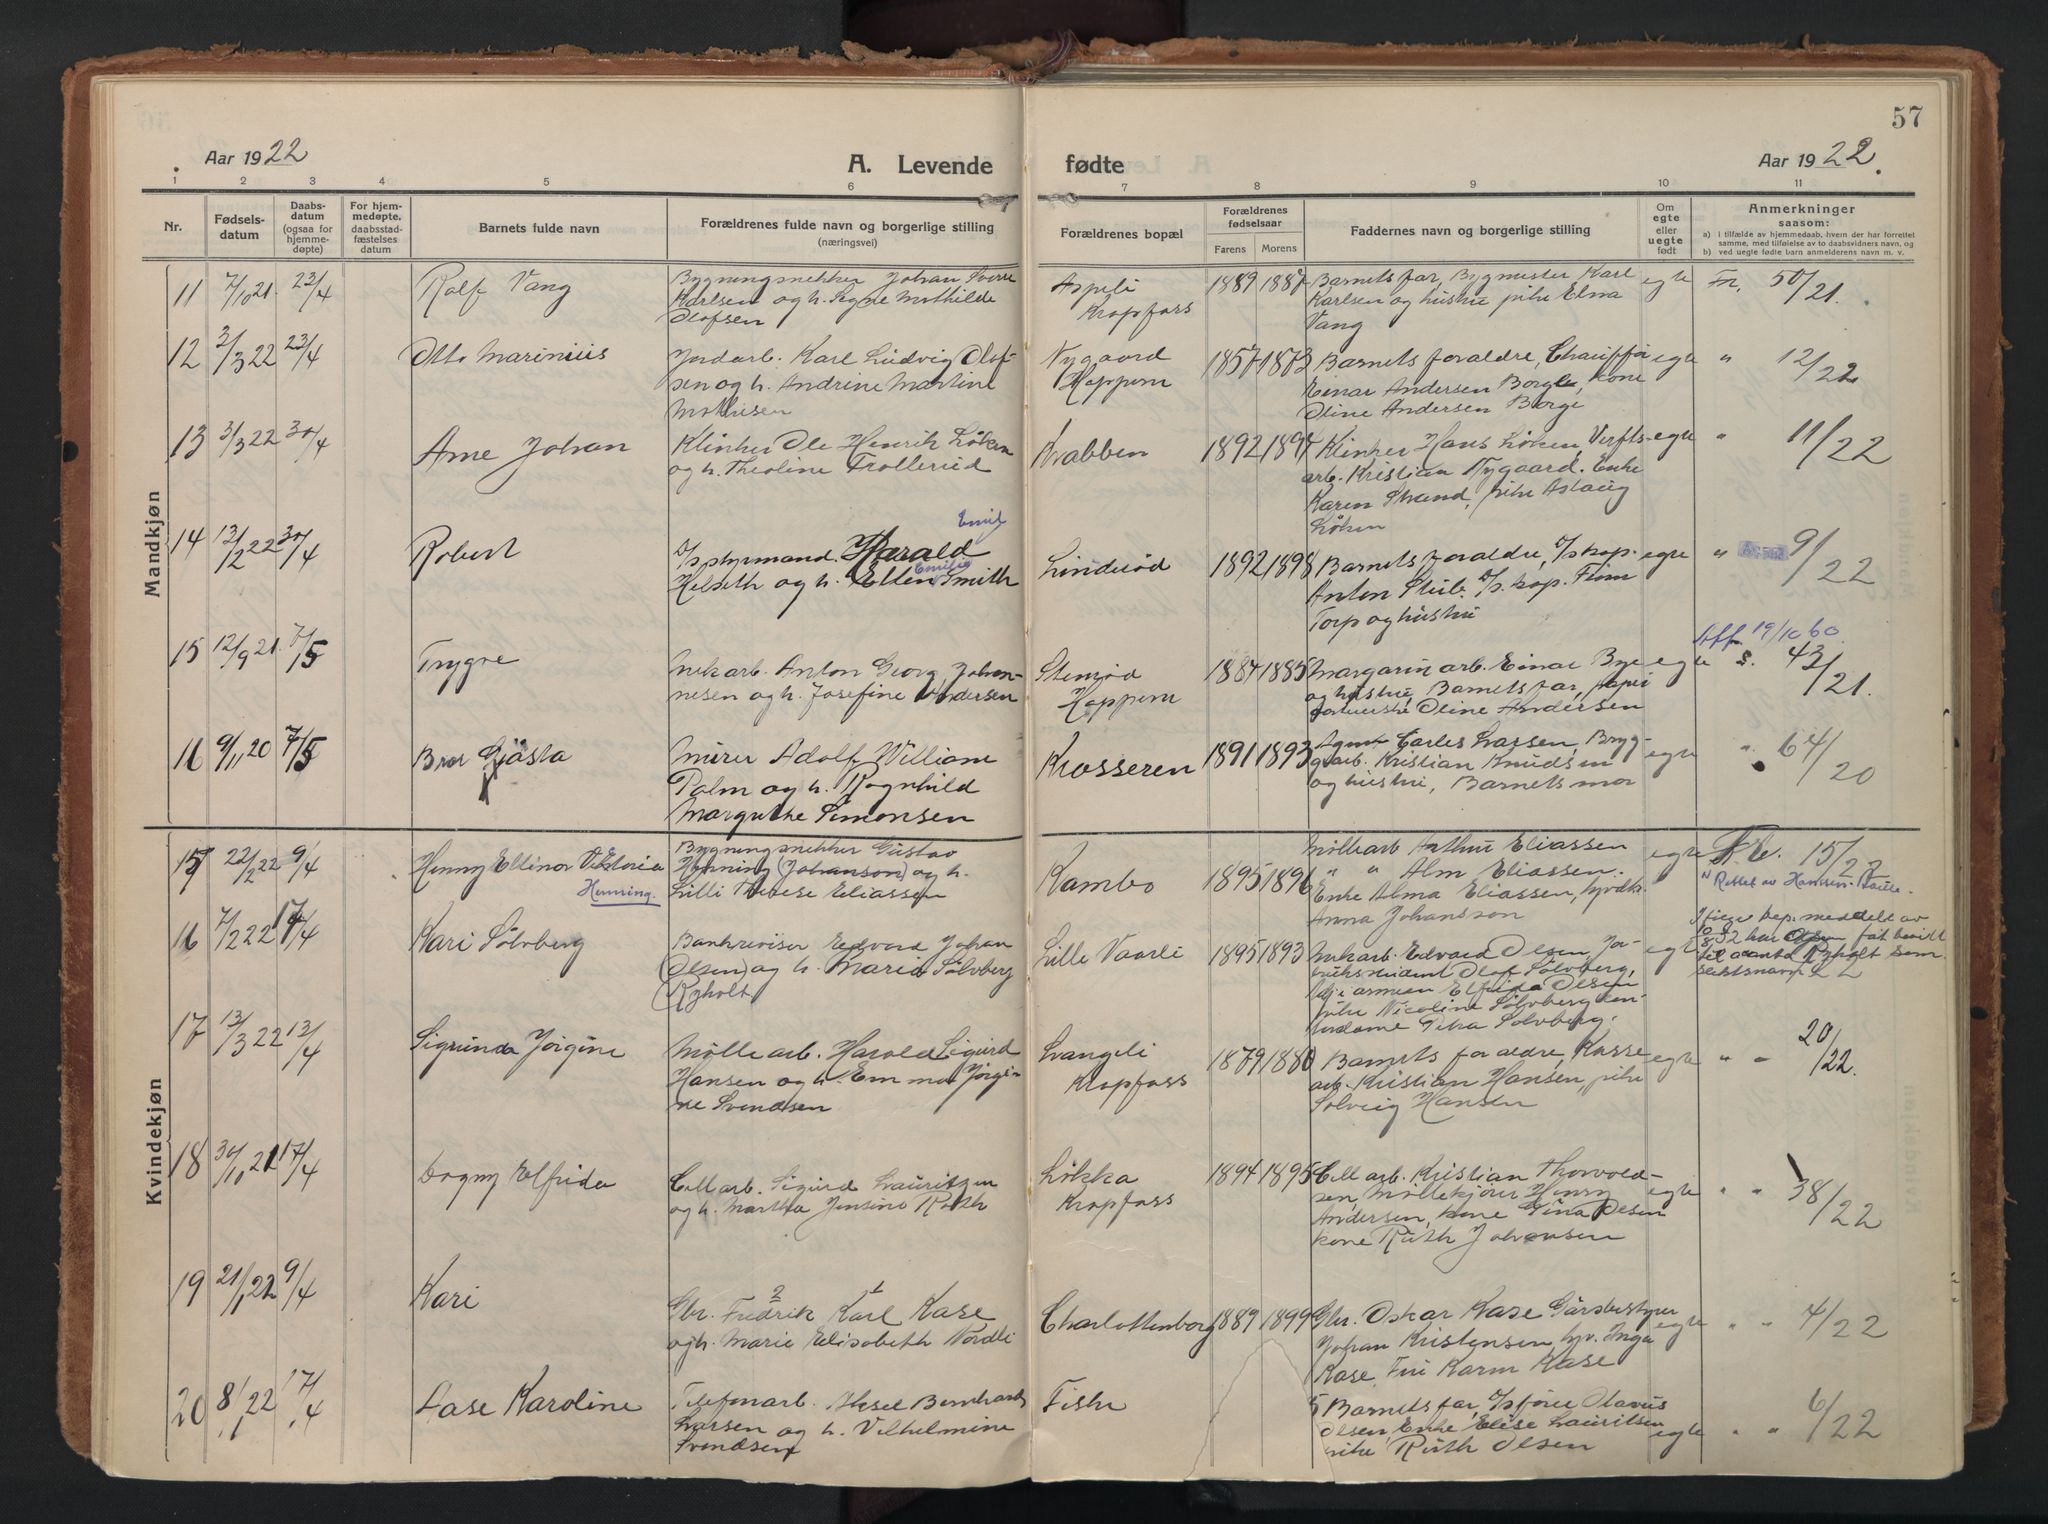 57
Aar 1922
A. Levende
fødte
Aar 1922.
1 2 3 4 5 6 7 8 9 10 11
Nr.
Fødsels-
datum
Daabs-
datum
(ogsaa for
hjemme-
døpte)
For hjem-
medøpte,
daabsstad-
fæstelses
datum
Barnets fulde navn
Forældrenes fulde navn og borgerlige stilling
(næringsvei)
Forældrenes bopæl
Forældrenes
fødselsaar
Farens Morens
Faddernes navn og borgerlige stilling
Om
egte
eller
uegte
født
Anmerkninger
saasom:
a) i tilfælde av hjemmedaab, hvern der har forrettet
samme, med tilføielse av to daabsvidners navn, og
b) ved uegte fødte barn anmelderens navn m. v.
Mandkjøn
11 7/10 21. 23/4 Rolf Vang
Bygningsnekker Johan Sverre
Karlsen og h. Signe Mathilde
Olofsen
Aspeli
Kropfoss
1889 1887
Barnets far, Bygmester Karl
Karlsen og hustru pike Elna
Vang
egte Fr. 50/21.
12 2/3 22 23/4 Otto Marinius
Jordarb. Karl Ludvig Olof-
sen og h. Andrine Martine
Mathisen
Nygaard
Hoppern
1857 1873
Barnets foraldre, Chauffør
Einar Andersen Borge, kone
Oline Andersen Borge
egte " 12/22
13 3/3 22 30/4 Arne Johan
Klinker Ole Henrik Løken
og h. Theoline Trollerud
Krabben
1892 1894
Klinker Hans Løken, Verfts-
arb. Kristian Nygaard. Enke
Karen Strand, pike Aslaug
Løken
egte " 11/22
14 13/2 22 30/4 Robert
Emil
D/s styrmand. Harald
Emilie
Helseth og h. Ellen Smith
Linderød
1892 1898
Barnets foraldre, D/s kap.
Anton Stub. D/s kap. Finn
Torp og hustru
egte " 9/22
15 12/9 21. 7/5 Trygve
Murarb. Anton Georg Johan-
nesen og h. Josefine Andersen
Stenrød
Hoppern
1884 1885
Margarin arb. Einar Bye
og hustru, Barnets far, papir
Oline Andersen
egte 19/10 60. 43/21.
16 9/11 20 7/5 Bror Gösta
Murer Adolf William
Palm og h. Ragnhild
Margrethe Simonsen
Krosseren
1891 1893
Agent Carles Larsen, Bryg-
garb. Kristian Knudsen
og hustru, Barnets mor
egte " 64/20
Kvindekjøn
15 22/2 22 9/4 Henny Ellinor Viktoria
Henning.
Bygningsnekker Gustav
Henning (Johanson) og h.
Lilli Therese Eliassen
Kambo
1895 1896
Møllearb Arthur Eliassen
" " Alm Eliassen.
Enke Alma Eliassen,
Anna Johansson
egte Fr. 15/22
16 7/2 22 17/4 Kari Sølvberg
Bankrevisor Edvard Johan
(Olsen) og h. Maria Sølvberg
(Ryholt
Lille Vaarli
1895 1893
Murarb. Edvard Olsen,
Olof Sølvberg,
Elfrida Olsen
pike Nicoline Sølvberg
Petra Sølvberg.
egte
Ifølge dep. meddelt av
slektsnavn 22
17 13/3 22 13/4 Sigrunda Jørgine
Møllearb. Harald Sigurd
Hansen og h. Emma Jørgi-
ne Svendsen
Svangeli
Kropfoss
1879 1880
Barnets foraldre, Kasse
arb. Kristian Hansen, pike
Solveig Hansen
egte " " 20/22.
18 30/10 21 17/4 Dagny Elfrida
Cell arb. Sigurd Lauritzen
og h. Martha Jensine Roth
Løkka
Kropfoss
1894 1895
Cell arb. Kristian Thorvold-
sen, Møllekjører Henry
Andersen, kone Gina Olsen
kone Ruth Johansen
egte " " 38/22
19 21/1 22 9/4 Kari
2 1
Gbr. Fredrik Karl Kase
og h. Marie Elisabeth Nordli
Charlottenborg
1889 1899
Gbr. Oskar Kase Gårdsbestyrer
Johan Kristensen, hv. Inga
Kase, Fru Karin Kase
egte " " 4/22
20 8/1 22 17/4 Aase Karoline
Telefonarb. Aksel Bernhard
Larsen og h. Vilhelmine
Svendsen
Fiske
Barnets far, D/s fører Olavus
Olsen, Enke Elise Lauritsen
pike Ruth Olsen
egte " " 6/22